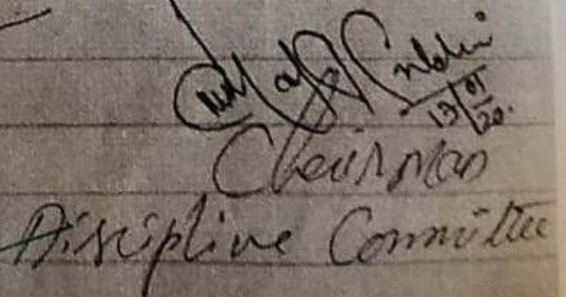 13/01/20.
Chairman
Discipline Committee